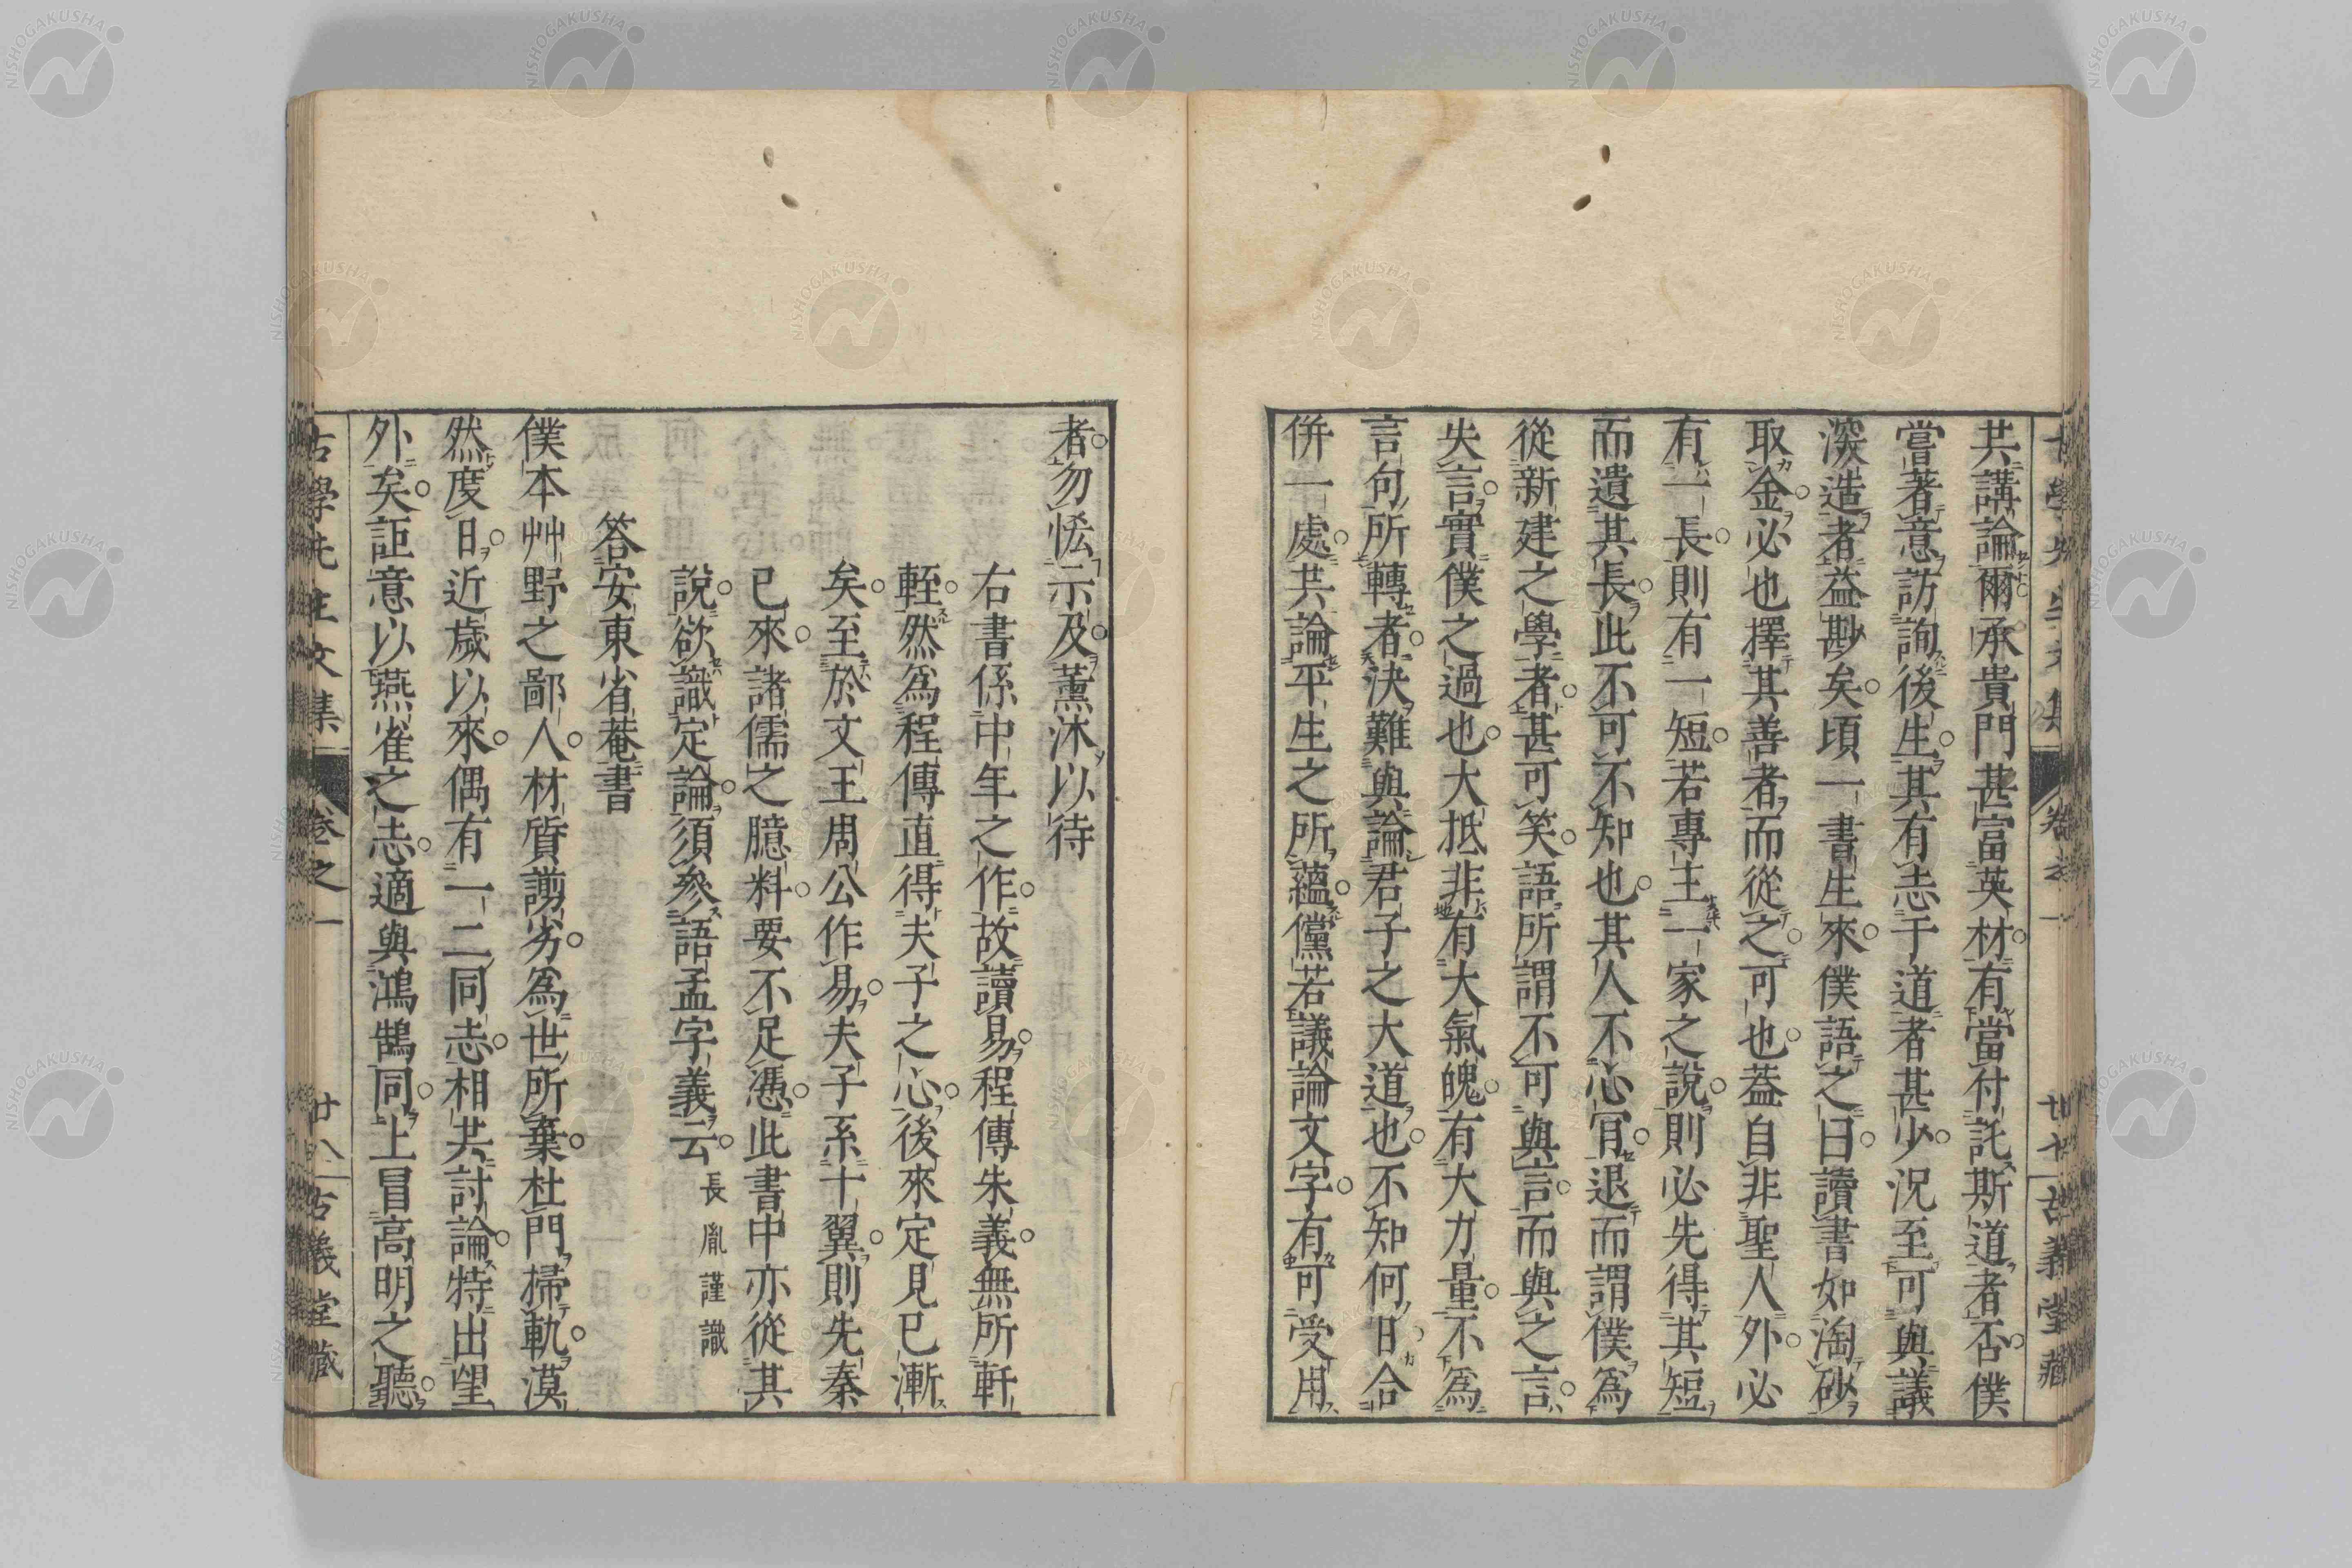 共講論爾承貴門甚富英材有當付託斯道者否僕
嘗著意訪詢後生其有志于道者甚少況至可與議
深造者益尠矣頃一書生來僕語之曰讀書如淘砂
取金必也擇其善者而從之可也蓋自非聖人外必
有一長則有一短若專主一家之說則必先得其短
而遺其長此不可不知也其人不心肎退而謂僕爲
從新建之學者甚可笑語所謂不可與言而與之言
失言實僕之過也大抵非有大氣魄有大力量不爲
言句所轉者決難與論君子之大道也不知何日合
併一處共論平生之所蘊儻若議論文字有可受用
者勿恡示及薰沐以待
右書係中年之作故讀易程傳朱義無所軒
輊然爲程傳直得夫子之心後來定見已漸
矣至於文王周公作易夫子系十翼則先秦
已來諸儒之臆料要不足憑此書中亦從其
說欲識定論須參語孟字義云 長胤謹識
答安東省菴書
僕本艸野之鄙人材質謭劣爲世所棄杜門掃軌漠
然度日近歲以來偶有一二同志相共討論特出望
外矣詎意以燕雀之志適與鴻鵠同上冒高明之聽
古學先生文集 卷之一 廿八 古義堂藏
NISHOGAKUSHA